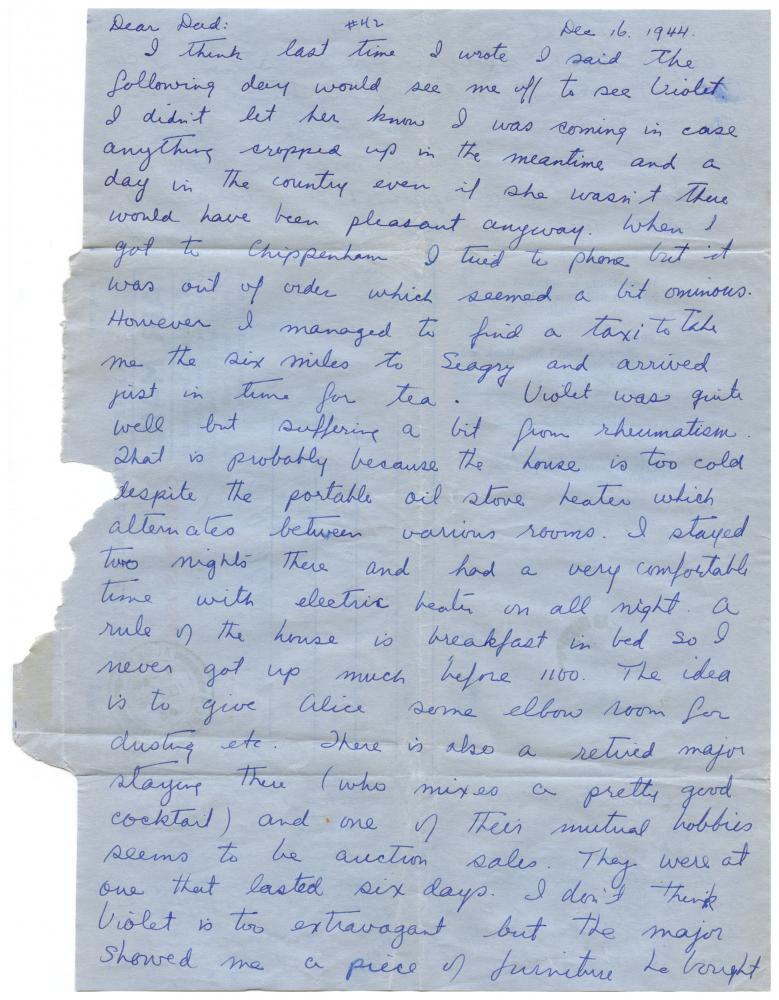 Dear Dad: #42 Dec 16. 1944.
I think last time I wrote I said the
following day would see me off to see Violet.
I didn't let her know I was coming in case
anything cropped up in the meantime and a
day in the country even if she wasn't there
would have been pleasant anyway. When I
got to Chippenham I tried to phone but it
was out of order which seemed a bit ominous.
However I managed to find a taxi to take
me the six miles to Seagry and arrived
just in time for tea. Violet was quite
well but suffering a bit from rheumatism.
That is probably because the house is too cold
despite the portable oil stove heater which
alternates between various rooms. I stayed
two nights there and had a very comfortable
time with electric heater on all night. A
rule of the house is breakfast in bed so I
never got up much before 1100. The idea
is to give Alice some elbow room for
dusting etc. There is also a retired major
staying there (who mixes a pretty good
cocktail) and one of their mutual hobbies
seems to be auction sales. They were at
one that lasted six days. I don't think
Violet is too extravagant but the major
showed me a piece of furniture he bought